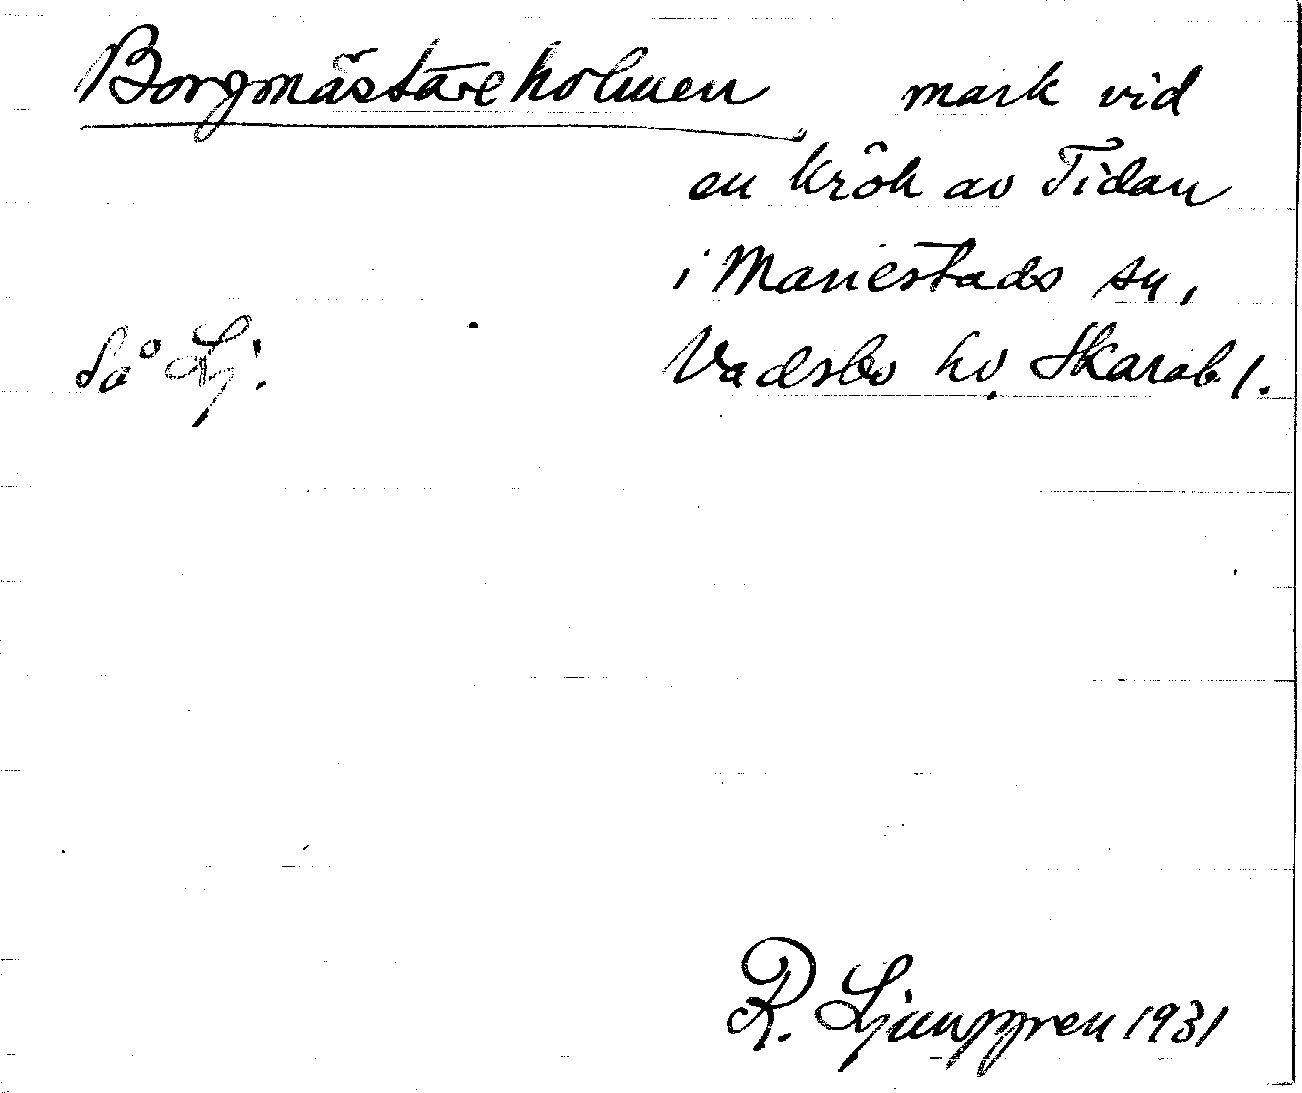 Borgmästareholmen mark vid
en krök av Tidan
i Mariestads sn,
så Lj. Vadsbo hd. Skarab. l.
R. Ljunggren 1931